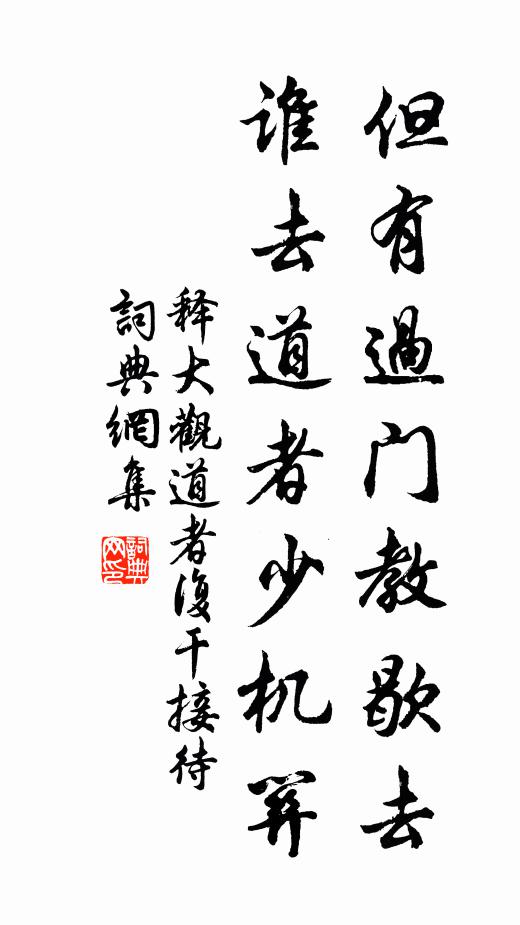 但有過门教歇去
谁去道者少机筭
释大觀道者復干接待
詞典網集
詞典网印